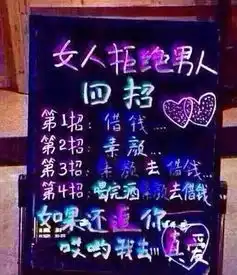 女人拒绝男人
四招
第1招：借钱...
第2招：素颜...
第3招：素颜去借钱...
第4招：喝完酒素颜去借钱
如果还追你
哎哟我去!!! 真爱